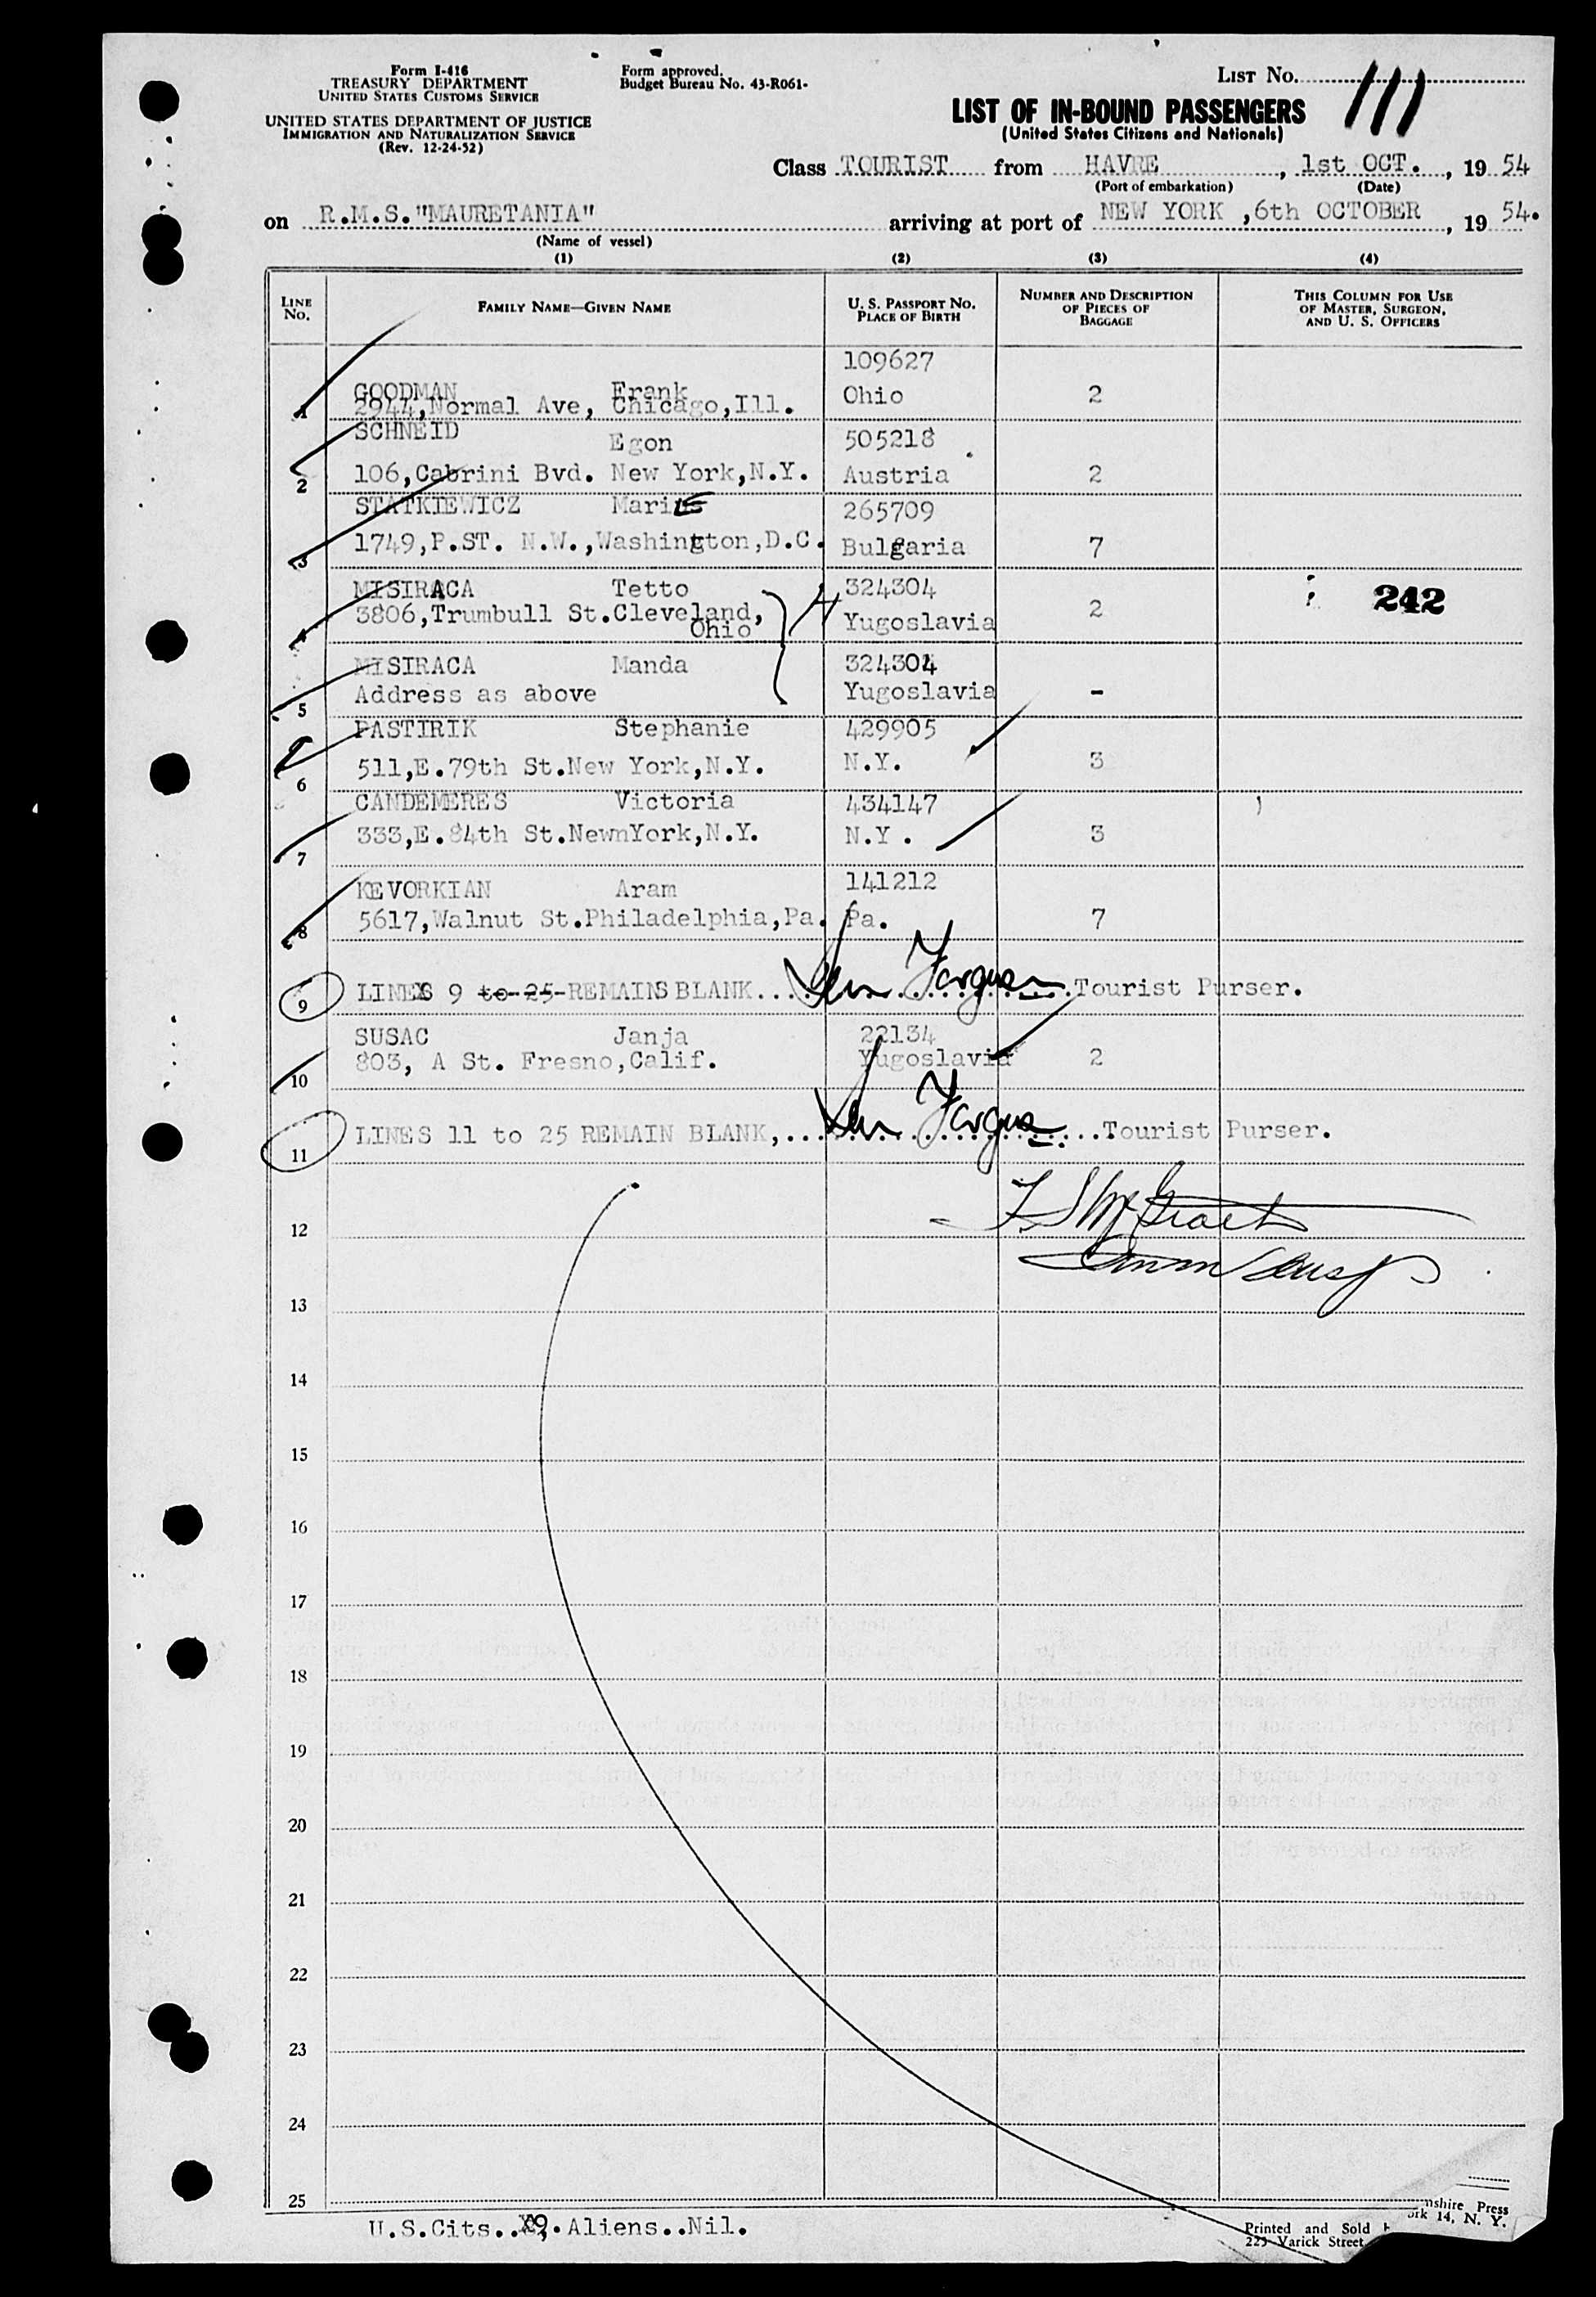 Form I-416
TREASURY DEPARTMENT
UNITED STATES CUSTOMS SERVICE
UNITED STATES DEPARTMENT OF JUSTICE
IMMIGRATION AND NATURALIZATION SERVICE
(Rev. 12-24-52)
Form approved.
Budget Bureau No. 43-R061-
LIST No. 111
LIST OF IN-BOUND PASSENGERS
(United States Citizens and Nationals)
Class TOURIST from HAVRE, 1st OCT., 19 54
(Port of embarkation) (Date)
on R.M.S."MAURETANIA" arriving at port of NEW YORK ,6th OCTOBER, 19 54.
(Name of vessel)
(1) (2) (3) (4)
LINE No. FAMILY NAME—GIVEN NAME U. S. PASSPORT No. PLACE OF BIRTH NUMBER AND DESCRIPTION OF PIECES OF BAGGAGE THIS COLUMN FOR USE OF MASTER, SURGEON, AND U. S. OFFICERS
109627
GOODMAN Frank Ohio 2
1 2944,Normal Ave, Chicago,Ill.
SCHNEID Egon 505218
2 106,Cabrini Bvd. New York,N.Y. Austria 2
STATKIEWICZ Marie 265709
3 1749,P.ST. N.W.,Washington,D.C. Bulgaria 7
MISIRACA Tetto 324304 242
3806,Trumbull St.Cleveland, Yugoslavia 2
4 Ohio
MISIRACA Manda 324304
5 Address as above Yugoslavia -
PASTIRIK Stephanie 429905
6 511,E.79th St.New York,N.Y. N.Y. 3
CANDEMERES Victoria 434147
7 333,E.84th St.NewmYork,N.Y. N.Y. 3
KEVORKIAN Aram 141212
8 5617,Walnut St.Philadelphia,Pa. Pa. 7
9 LINE 9 to 25 REMAINS BLANK.... Tourist Purser.
SUSAC Janja 22134
10 803, A St. Fresno,Calif. Yugoslavia 2
11 LINES 11 to 25 REMAIN BLANK,.... Tourist Purser.
12
13
14
15
16
17
18
19
20
21
22
23
24
25
U.S.Cits..9,.Aliens..Nil.
Printed and Sold
225 Varick Street
nshire Press
ork 14, N. Y.